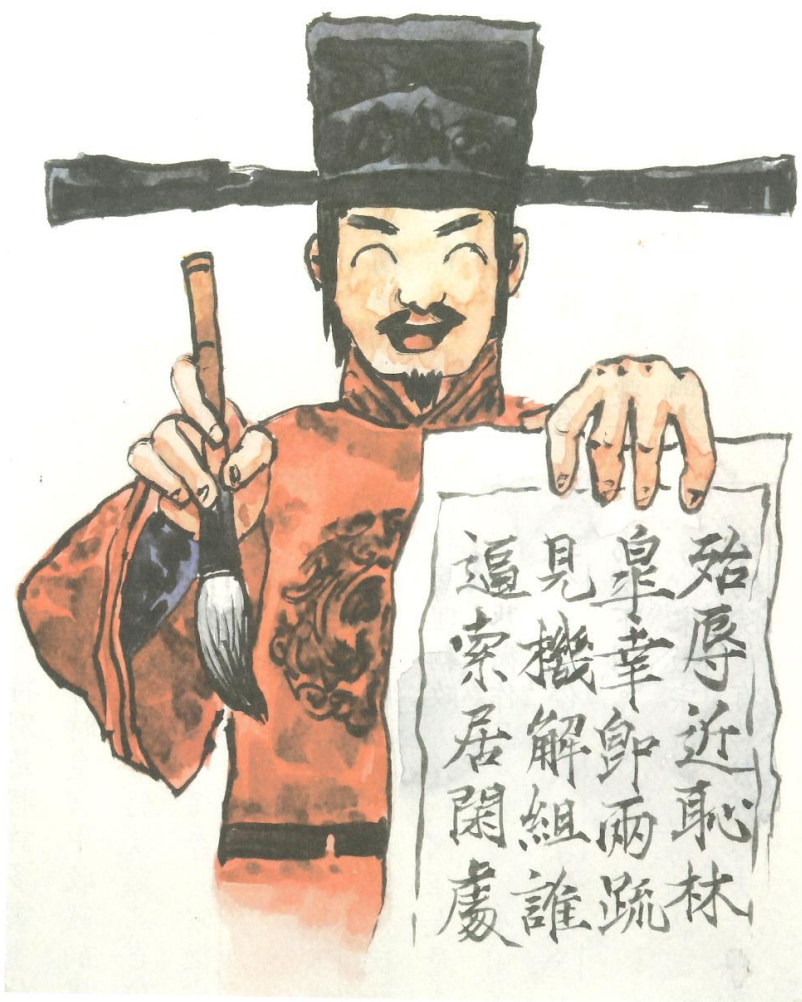 殆辱近恥林
皐幸即兩疏
見機解組誰
逼索居閑處